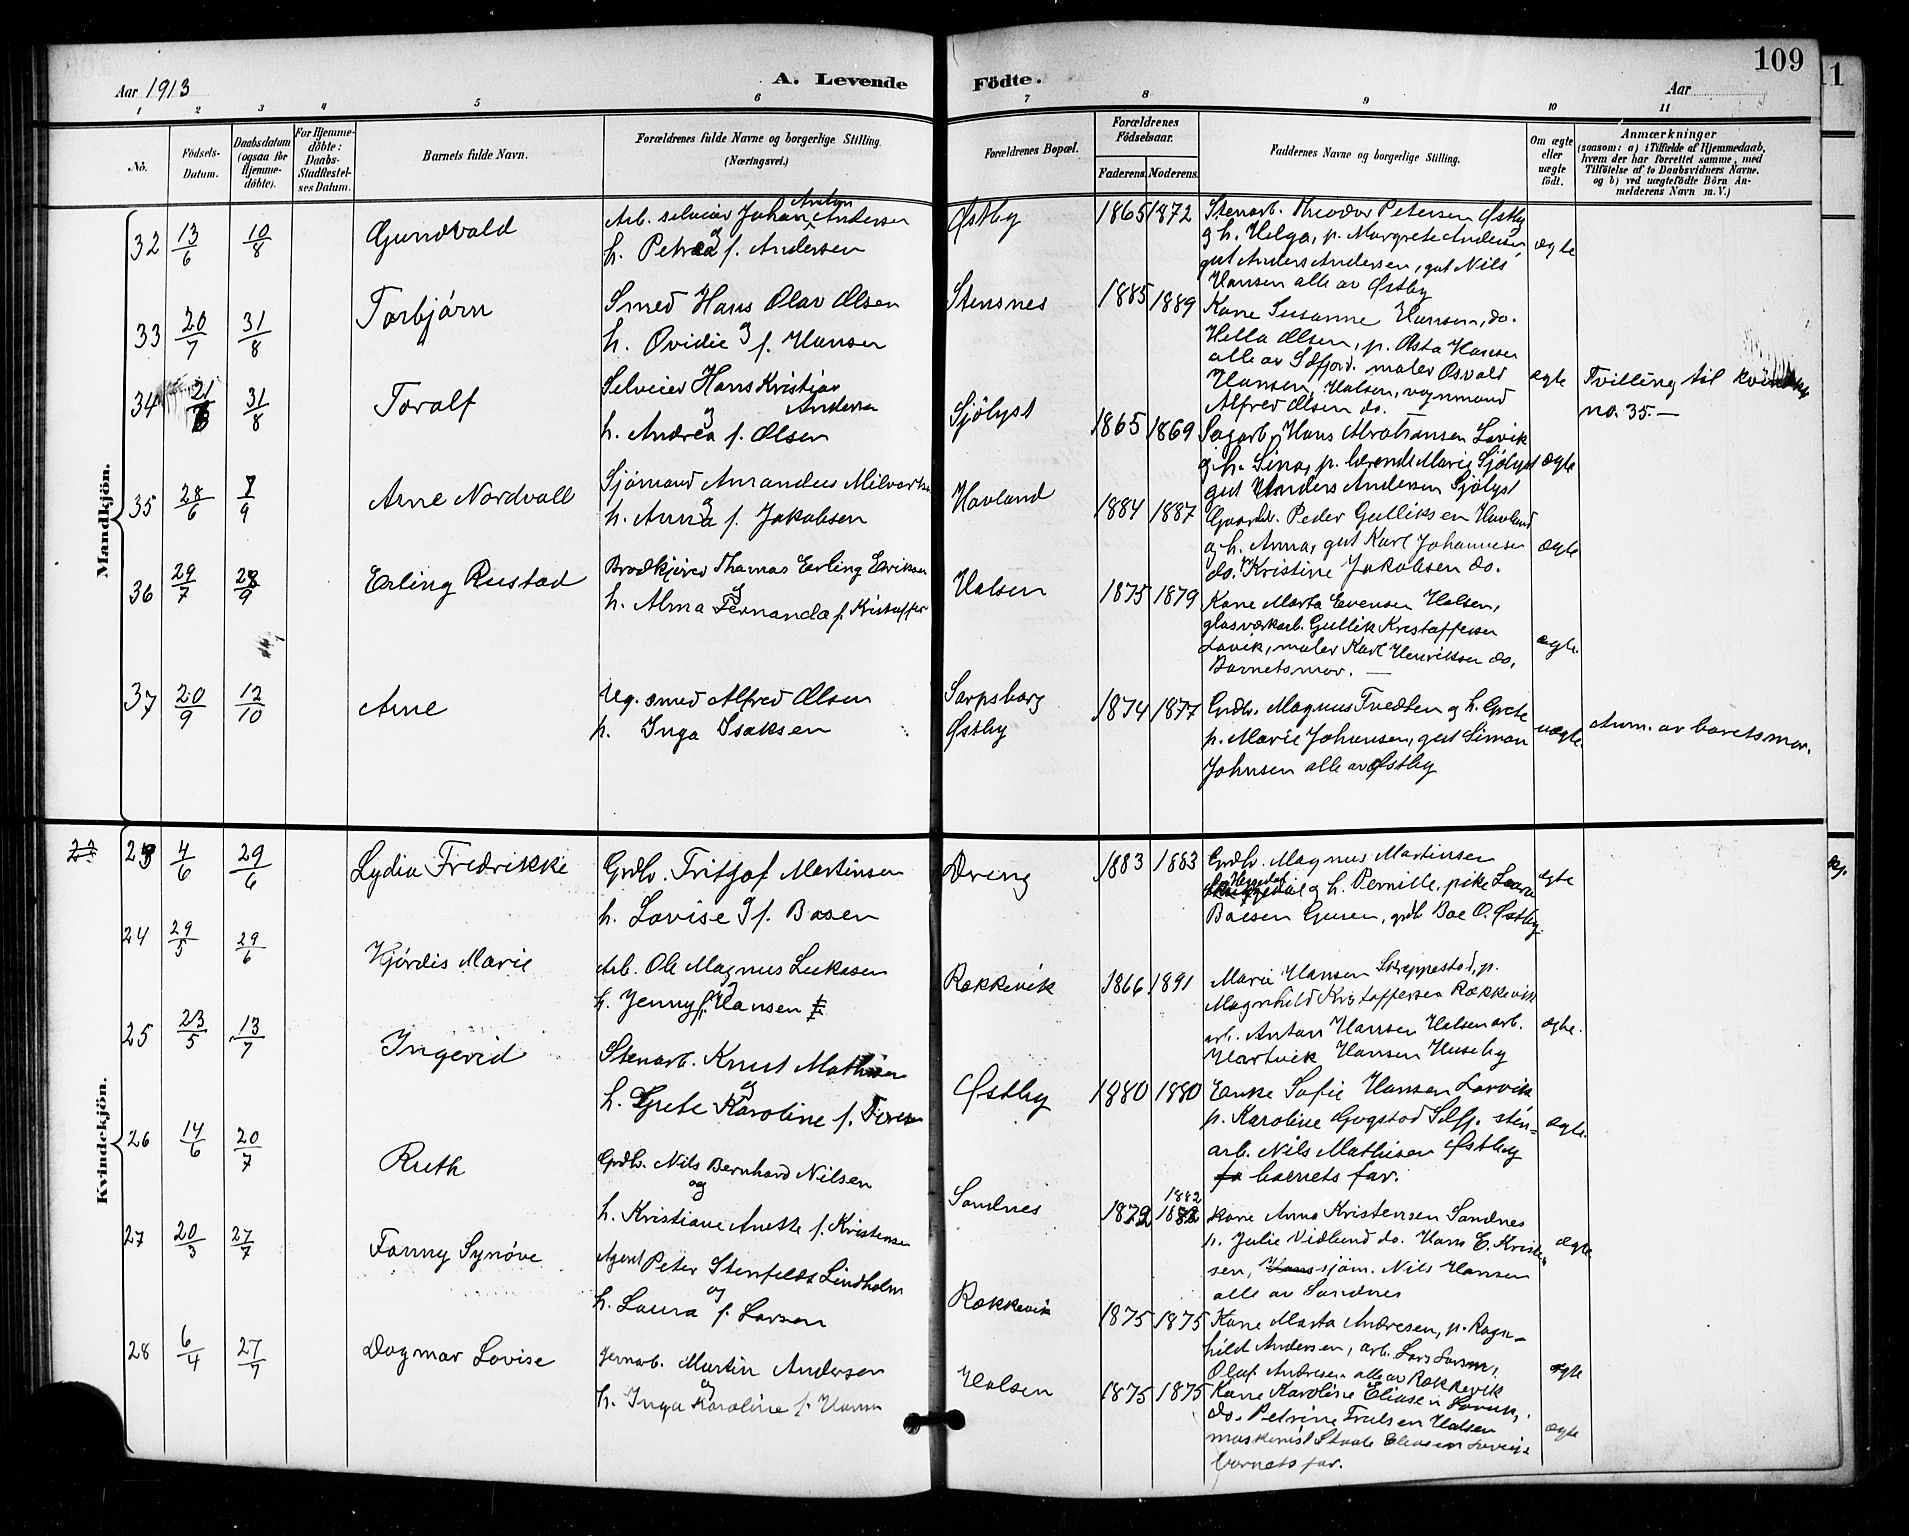 109
11
Aar 1913
A. Levende
Födte.
Aar
1 2 3 4 5 6 7 8 9 10 11
No.
Födsels-Datum.
Daabsdatum (ogsaa for Hjemme-döbte).
For Hjemme-döbte: Daabs-Stadfæstel-ses Datum.
Barnets fulde Navn.
Forældrenes fulde Navne og borgerlige Stilling (Næringsvei.)
Forældrenes Bopæl.
Forældrenes Födselsaar.
Faderens. Moderens.
Faddernes Navne og borgerlige Stilling.
Om ægte eller uægte födt.
Anmærkninger
(saasom: a) i Tilfælde af Hjemmedaab, hvem der har forrettet samme, med Tilföielse af to Daabsvidners Navne, og b) ved uægtefödte Börn An-melderens Navn m. V.)
Mandkjön.
32 13/6 10/8 Gundvald
Arb. selveier Johan Anton Andersen
og
h. Petrea f. Andersen
Østby 1865 1872
Stenarb. Theodor Petersen Østby
og h. Helga, p. Margrete Andersen
gut Anders Andersen, gut Nils
Hansen alle av Østby
ægte
33 20/7 31/8 Torbjørn
Smed Hans Olav Olsen
og
h. Ovidie f. Hansen
Stensnes 1885 1889
Kone Susanne Hansen, do.
Hella Olsen, p. Asta Hansen
alle av Sffjord. maler Osvald
Hansen, Halsen, vognmand
Alfred Olsen do.
ægte
34 21/6 31/8 Toralf
Selveier Hans Kristian
Andersen
og
h. Andrea f. Olsen
Sjölyst 1865 1869
Sagarb. Hans Abrahamsen Lavik
og h. Sina, p. Marie Sjölyst
gut Anders Andersen Sjölyst
ægte
Tvilling til
no. 35.-
35 28/6 7/9 Arne Nordvall
Sjömand Amandus
og
h. Anna f. Jakobsen
Havland 1884 1887
Gaardbr. Peder Gulliksen Havland
og h. Anna, gut Karl Johannesen
do. Kristine Jakobsen do.
ægte
36 29/7 28/9 Erling Rustad
Brödkjører Thomas Erling Eriksen
og
h. Alma Fernanda f. Kristoffer
Halsen 1875 1879
Kone Marta Evensen Halsen,
glasværkarb. Gullik Kristoffersen
Lavik, maler Karl Henriksen do,
Barnets mor. —
ægte.
37 20/9 12/10 Arne
Ug. smed Alfred Olsen
p. Inga Isaksen
Sarpsborg
Østby
1874 1877
Grdbr. Magnus Tvedten og h. Grete
p. Marie Johansen, gut Simon
Johnsen alle av Østby
uægte
Anm. av baretsmor.
Kvindekjön.
22 23 4/6 29/6 Lydia Fredrikke
Grdbr. Fritjof Martinsen
og
h. Lovise f. Basen
Øring 1883 1883
Grdbr. Magnus Martinsen
og h. Pernille, pike Laura
Boesen Guren, grdb Boe O. Østby.
ægte
24 29/5 29/6 Hjördis Marie
Arb. Ole Magnus Lukasen
og
h. Jenny f. Hansen
Rækkevik 1866 1891
Marie Hansen Skreppestad, p.
Magnhild Kristoffersen Rækkevik
arb. Anton Hansen Halsen arb.
Hartvik Hansen Huseby
ægte.
25 23/5 13/7 Ingerid
Stenarb. Knut Mathisen
og
h. Grete Karoline f.
Østby 1880 1880
Enke Sofie Hansen Larvik
p. Karoline Gogstad Sdff. sten-
arb. Nils Mathisen Østby
barnets far.
ægte.
26 14/6 20/7 Ruth
Grdbr. Nils Bernhard Nilsen
og
h. Kristiane Anette f. Kristensen
Sandnes 1872 1882
Kone Anna Kristensen Sandnes
p. Julie Vidlund do. Hans E. Kristen-
sen, sjøm. Nils Hansen
alle av Sandnes
ægte.
27 20/3 27/7 Fanny Synöve
Agent Peter Stenfeldt Lindholm
og
h. Laura f. Larsen
Rækkevik 1875 1875
Kone Marta Andresen, p. Ragn-
hild Andersen, arb. Lars Larsen,
Olaf Andresen alle av Rækkevik
ægte
28 6/4 27/7 Dagmar Lovise
Jernarb. Martin Andersen
og
h. Inga Karoline f. Hansen
Halsen 1875 1875
Kone Karoline Eliasen Lavik,
do. Petrine Trulsen Halsen
maskinist Eliasen
barnets far.
ægte